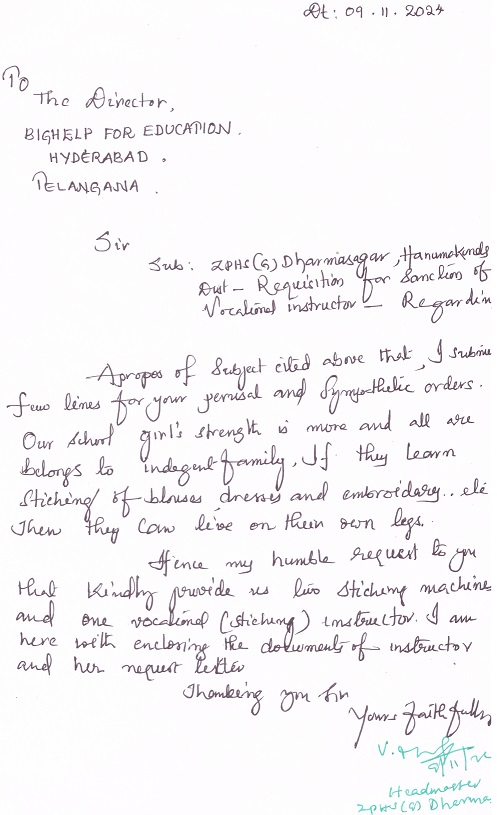 Dt: 09.11.2024
To
The Director,
BIGHELP FOR EDUCATION.
HYDERABAD.
TELANGANA.
Sir
Sub: ZPHS(G) Dharmasagar, Hanumakonda
Dist – Requisition for Sanction of
Vocational instructor – Regardin
Apropos of Subject cited above that, I submit
few lines for your perusal and Sympothetic orders.
Our school girl's strength is more and all are
belongs to indegent family, If they learn
Stiching of blouses dresses and embroidary.. etc
Then they can live on their own legs.
Hence my humble request to you
that kindly provide us two Stiching machines
and one vocational (stiching) instructor. I am
here with enclosing the documents of instructor
and her request letter
Thanking you Sir
Yours faithfully
V.
Headmaster
ZPHS(G) Dharma